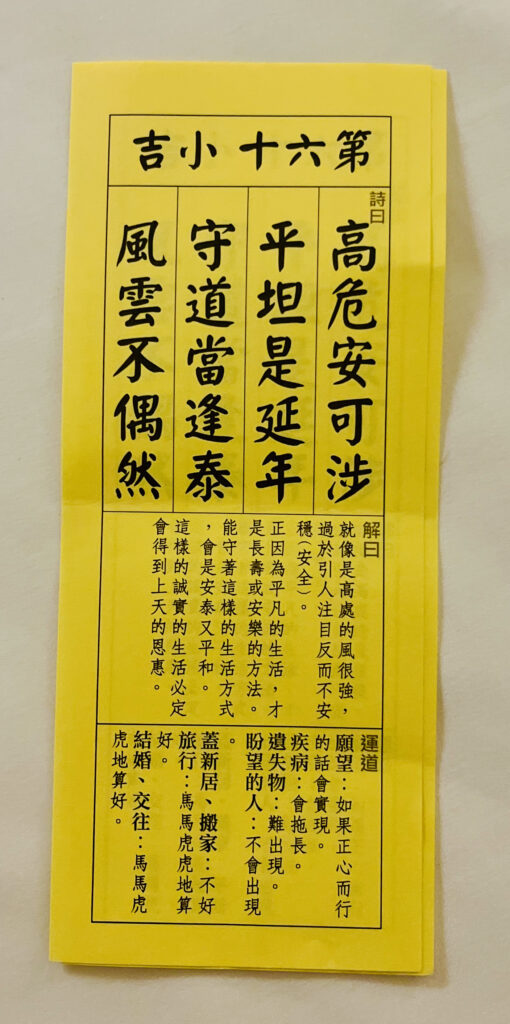 第六十 小吉
詩曰
高危安可涉
平坦是延年
守道當逢泰
風雲不偶然
解曰
就像是高處的風很強，
過於引人注目反而不安
穩（安全）。
正因為平凡的生活，才
是長壽或安樂的方法。
能守著這樣的生活方式
，會是安泰又平和。
這樣的誠實的生活必定
會得到上天的恩惠。
運道
願望：如果正心而行
的話會實現。
疾病：會拖長。
遺失物：難出現。
盼望的人：不會出現
。
蓋新居、搬家：不好
旅行：馬馬虎虎地算
好。
結婚、交往：馬馬虎
虎地算好。